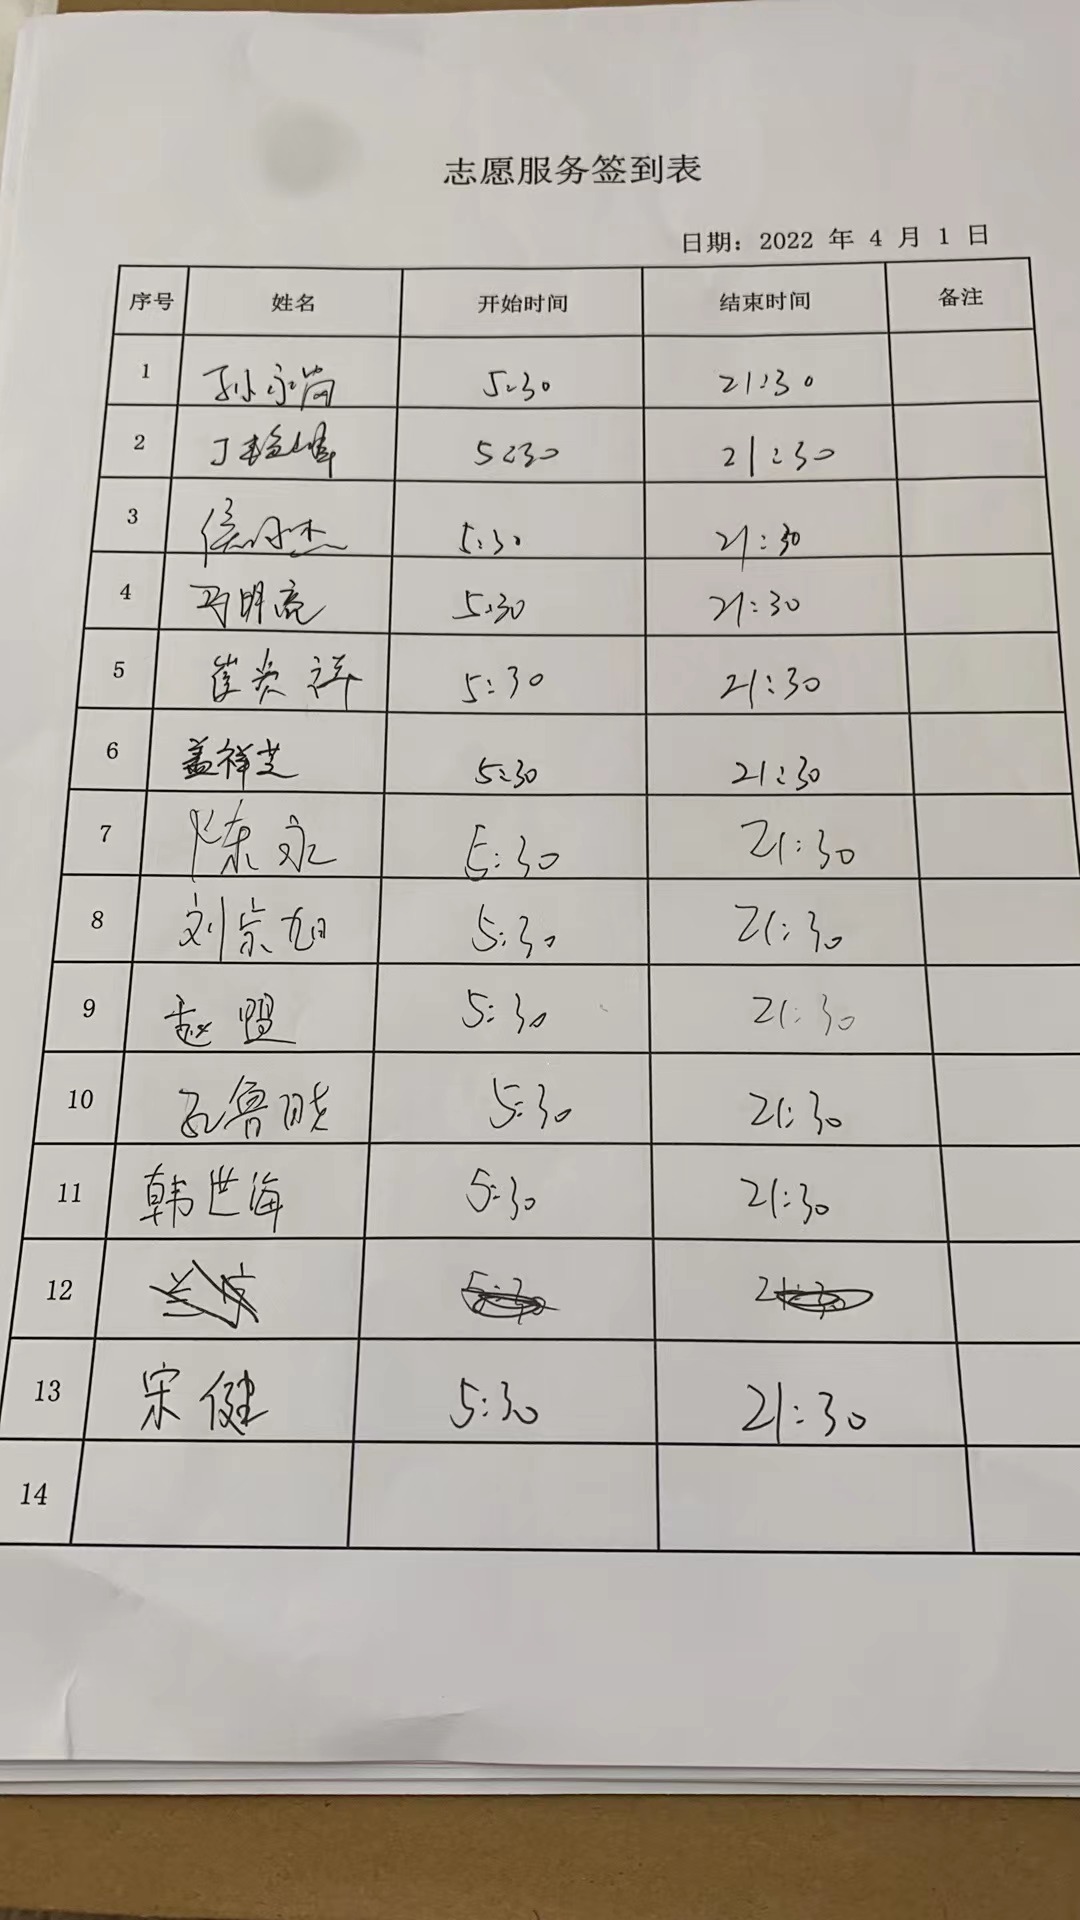 志愿服务签到表
日期：2022 年 4 月 1 日
序号 姓名 开始时间 结束时间 备注
1 孙永尚 5:30 21:30
2 丁 5:30 21:30
3 侯 杰 5:30 21:30
4 马明亮 5:30 21:30
5 崔 祥 5:30 21:30
6 盖祥芝 5:30 21:30
7 陈永 5:30 21:30
8 刘宗旭 5:30 21:30
9 赵盟 5:30 21:30
10 孔鲁晓 5:30 21:30
11 韩世海 5:30 21:30
12 5:30 21:30
13 宋健 5:30 21:30
14